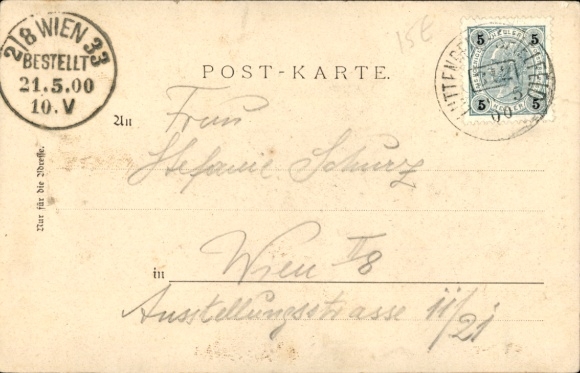 2/8 WIEN 33
BESTELLT
21.5.00
10.V
15E
5 5
5 5
00
POST-KARTE.
An Frau
Stefanie Schurz
Nur für die Adresse.
in Wien II8
Ausstellungsstrasse ii/21